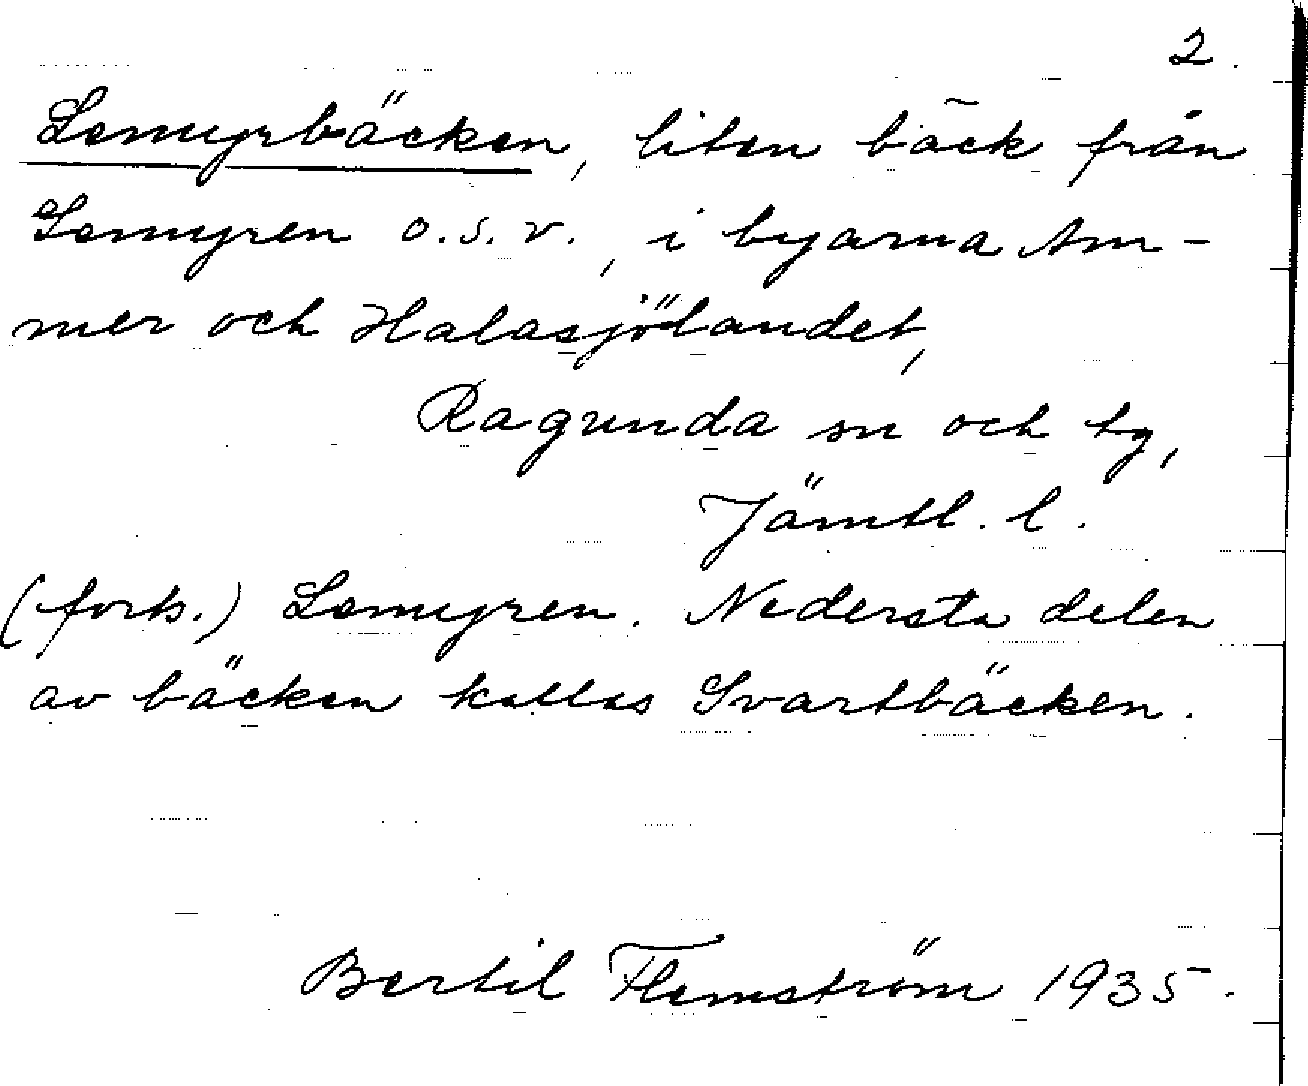 2.
Lemyrbäcken, liten bäck från
Lemyren o.s.v., i byarna Am-
mer och Halasjölandet,
Ragunda sn och tg,
Jämtl. l.
(forts.) Lemyren. Nedersta delen
av bäcken kallas Svartbäcken.
Bertil Flemström 1935.